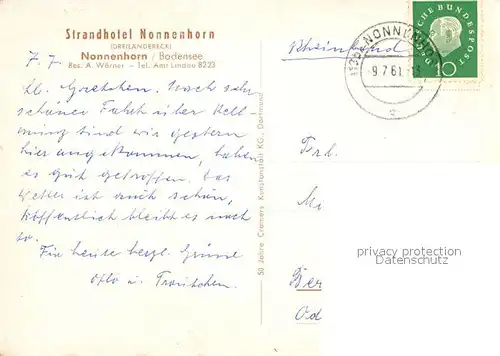 Strandhotel Nonnenhorn
(DREILÄNDERECK)
Nonnenhorn / Bodensee
Bes. A. Wörner - Tel. Amt Lindau 8223
7. 7.
Lb. Gretchen. Nach sehr
schöner Fahrt über
sind wir gestern
hier angekommen, haben
es gut getroffen. Das
Wetter ist auch schön,
hoffentlich bleibt es noch
so.
Für heute herzl. Grüsse
Otto u. Trautchen.
50 Jahre Cramers Kunstanstalt KG., Dortmund
Rheinland
NONNENHORN
9.7.61
DEUTSCHE BUNDESPOST
10
Ferd.
privacy protection
watermark